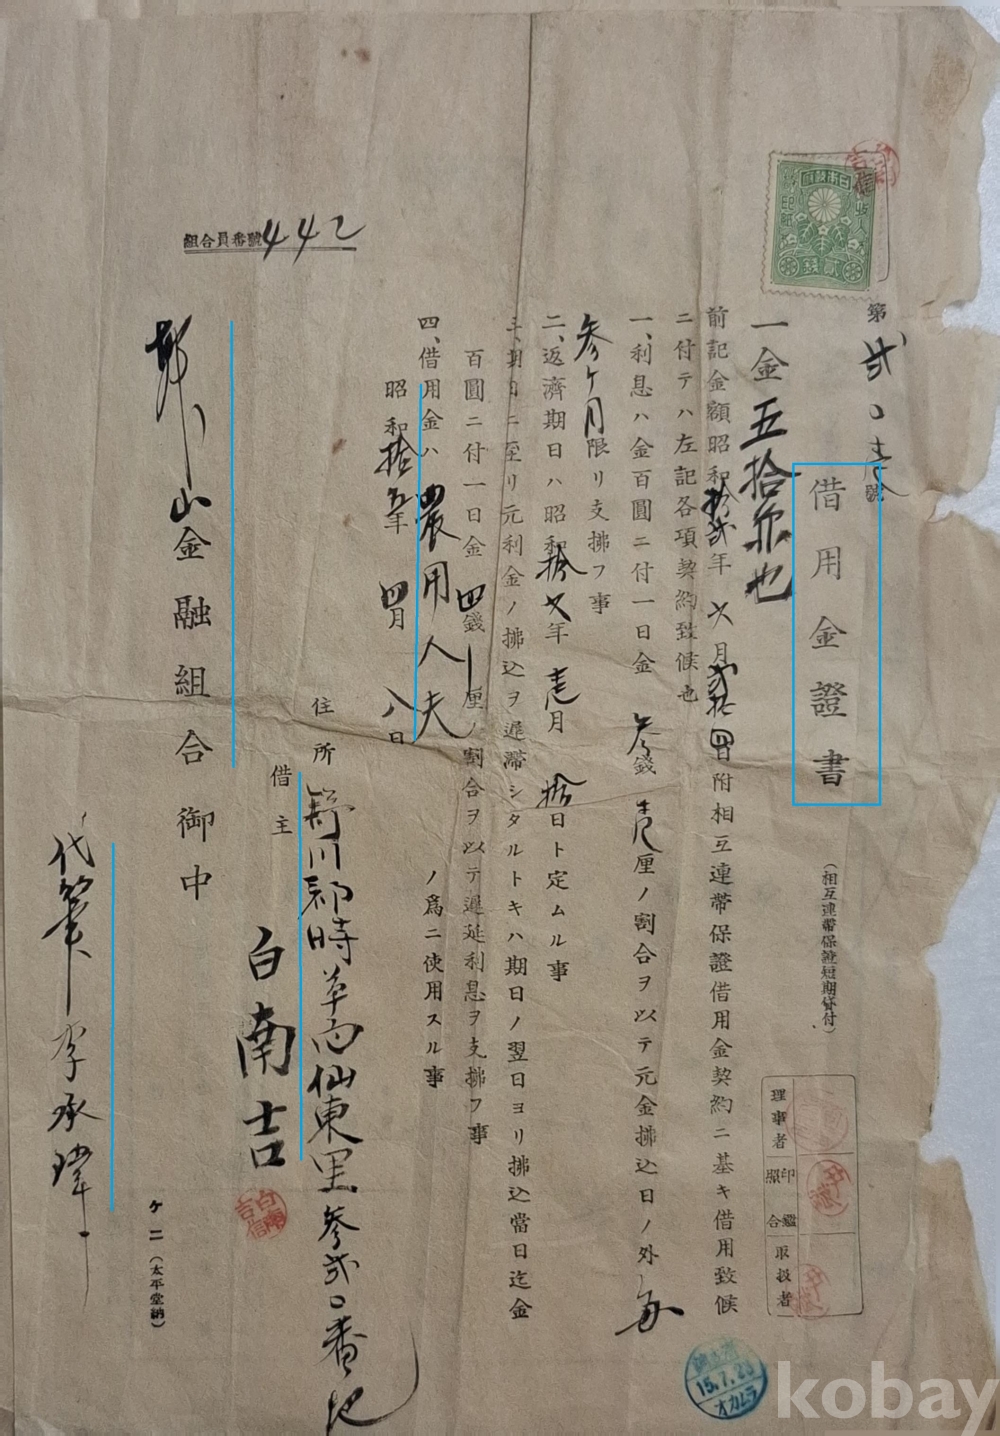 第貳〇壱號
借用金證書
(相互連帶保證短期貸付)
一金五拾円也
前記金額昭和拾貳年六月貳拾四日附相互連帶保證借用金契約ニ基キ借用致候
ニ付テハ左記各項契約致候也
一、利息ハ金百圓ニ付一日金參錢壱厘ノ割合ヲ以テ元金拂込日ノ外毎
參ケ月限リ支拂フ事
二、返濟期日ハ昭和拾六年壱月拾日ト定ムル事
三、期日ニ至リ元利金ノ拂込ヲ遲滯シタルトキハ期日ノ翌日ヨリ拂込當日迄金
百圓ニ付一日金四錢厘ノ割合ヲ以テ遲延利息ヲ支拂フ事
四、借用金ハ農用人夫ノ爲ニ使用スル事
昭和拾五年四月八日
住所
川郡時草面仙東里參貳〇番地
借主
白南吉
山金融組合御中
代筆李承瑋
組合員番號442
ケニ(太平堂納)
理事者
印鑑照合
取扱者
日本政府
收入印紙
貳錢
白南吉信
15.7.26
オカムラ
kobay